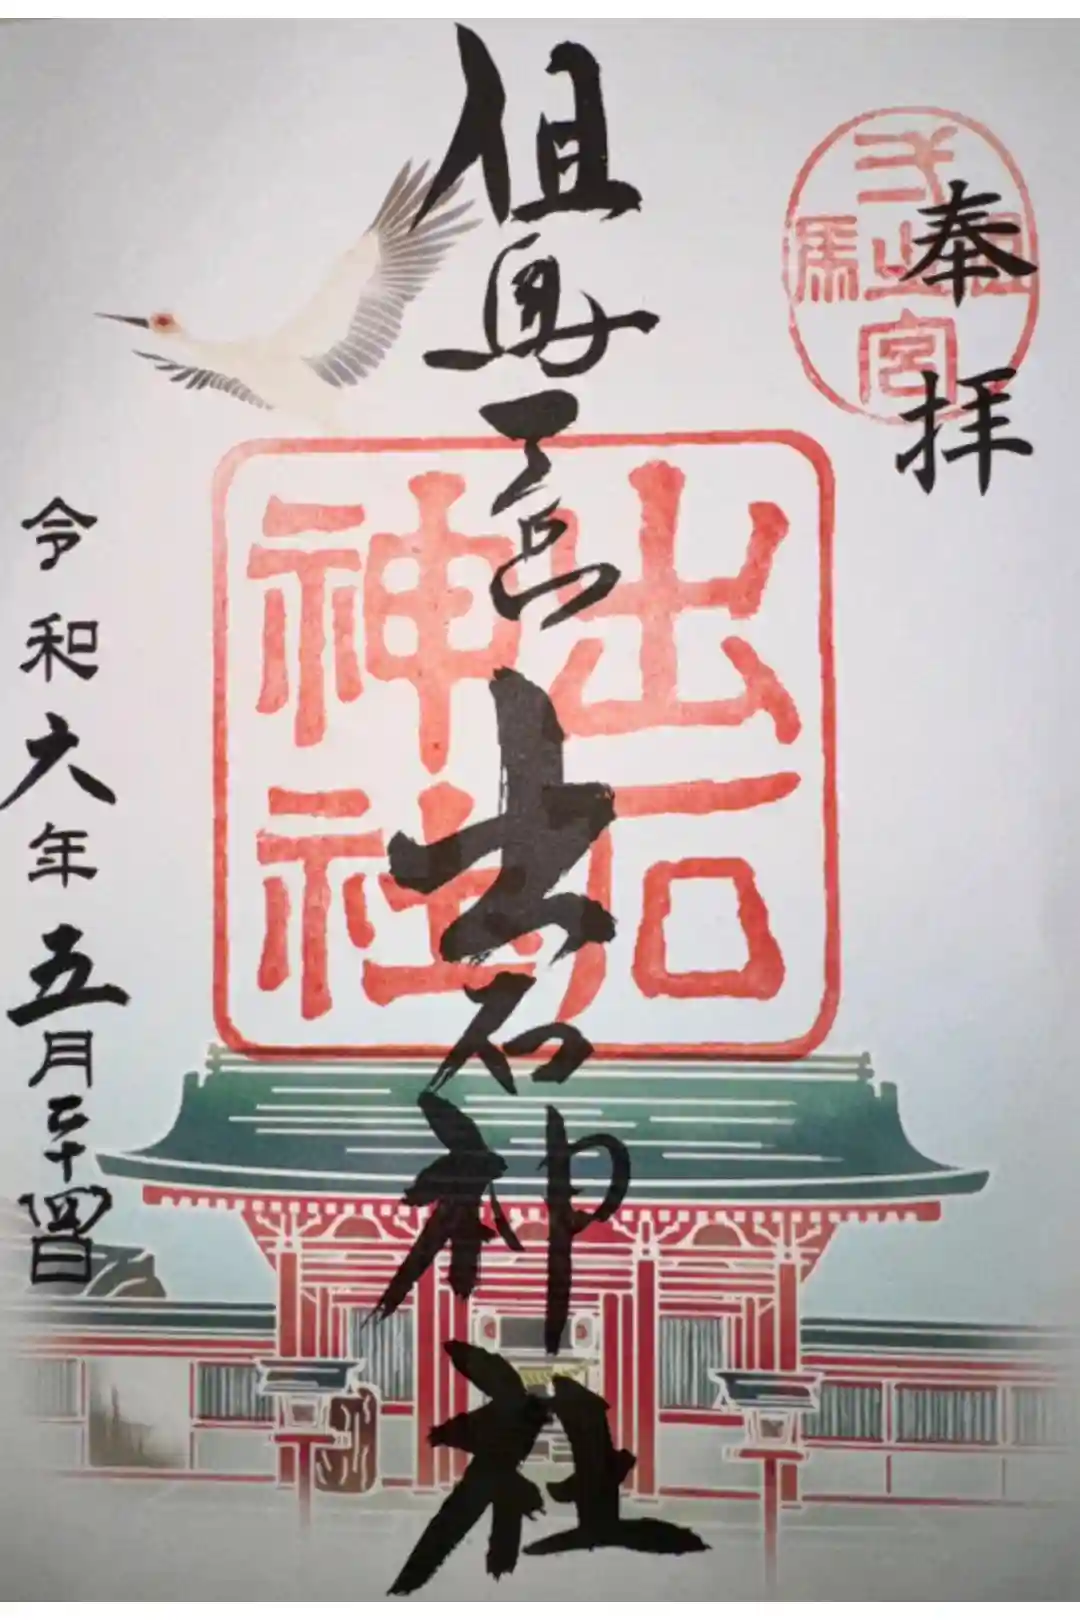 奉拝
但馬弌之宮
但馬一宮
出石神社
出石
神社
令和六年五月二十四日